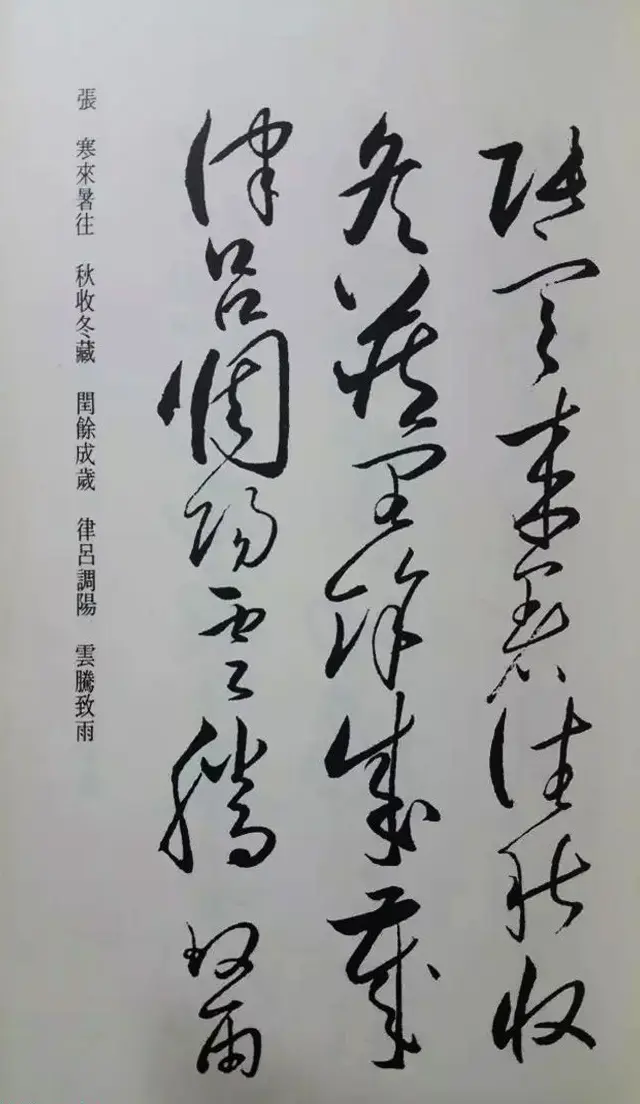 張寒來暑往秋收
冬藏閏餘成歲
律呂調陽雲騰致雨
張 寒來暑往 秋收冬藏 閏餘成歲 律呂調陽 雲騰致雨